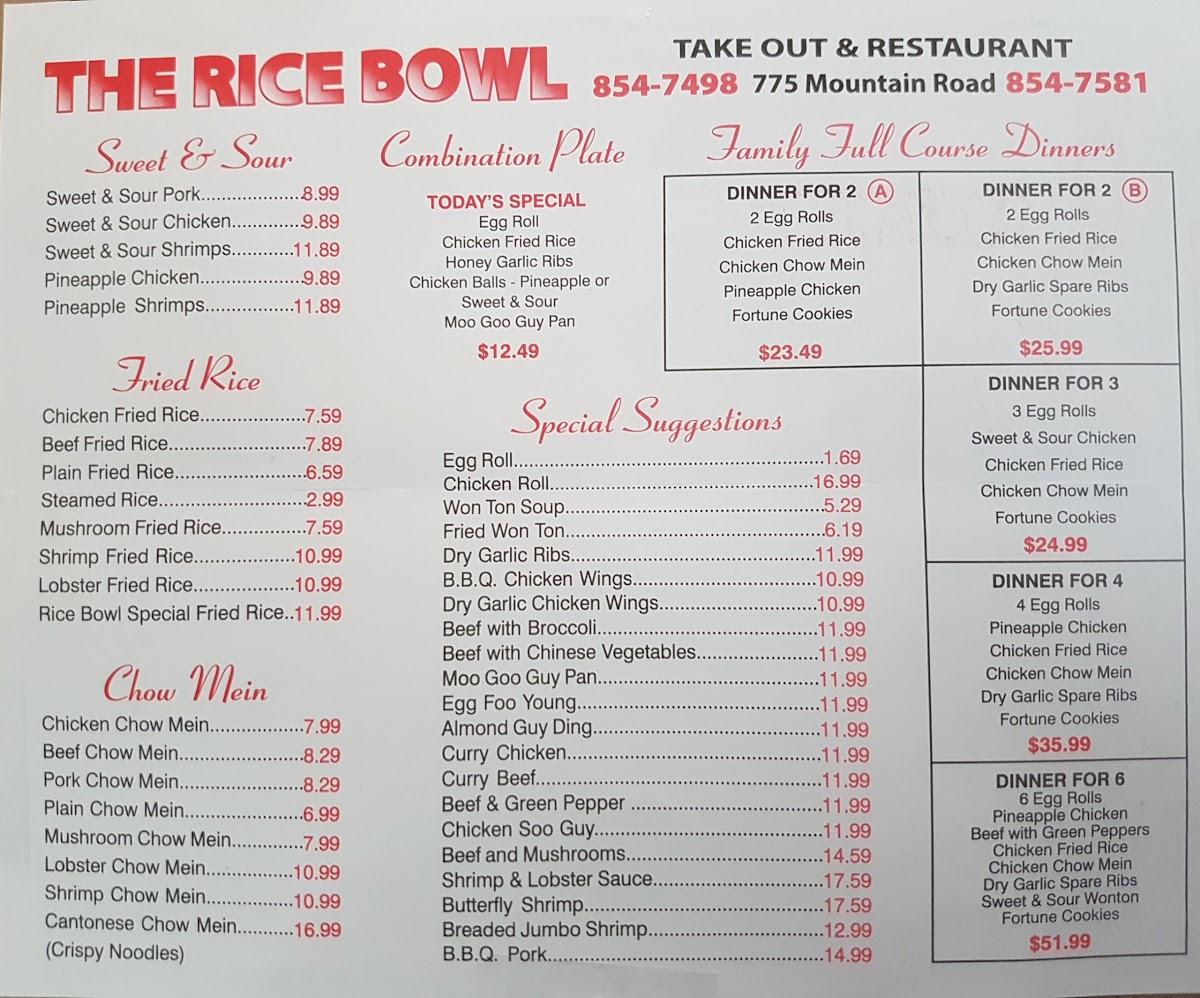 THE RICE BOWL
TAKE OUT & RESTAURANT
854-7498 775 Mountain Road 854-7581
Sweet & Sour
Sweet & Sour Pork....................8.99
Sweet & Sour Chicken..............9.89
Sweet & Sour Shrimps............11.89
Pineapple Chicken....................9.89
Pineapple Shrimps..................11.89
Fried Rice
Chicken Fried Rice.....................7.59
Beef Fried Rice...........................7.89
Plain Fried Rice..........................6.59
Steamed Rice.............................2.99
Mushroom Fried Rice.................7.59
Shrimp Fried Rice....................10.99
Lobster Fried Rice....................10.99
Rice Bowl Special Fried Rice..11.99
Chow Mein
Chicken Chow Mein...................7.99
Beef Chow Mein.........................8.29
Pork Chow Mein.........................8.29
Plain Chow Mein........................6.99
Mushroom Chow Mein..............7.99
Lobster Chow Mein.................10.99
Shrimp Chow Mein.................10.99
Cantonese Chow Mein...........16.99
(Crispy Noodles)
Combination Plate
TODAY'S SPECIAL
Egg Roll
Chicken Fried Rice
Honey Garlic Ribs
Chicken Balls - Pineapple or
Sweet & Sour
Moo Goo Guy Pan
$12.49
Special Suggestions
Egg Roll..............................................................1.69
Chicken Roll.....................................................16.99
Won Ton Soup....................................................5.29
Fried Won Ton....................................................6.19
Dry Garlic Ribs.................................................11.99
B.B.Q. Chicken Wings.....................................10.99
Dry Garlic Chicken Wings................................10.99
Beef with Broccoli............................................11.99
Beef with Chinese Vegetables........................11.99
Moo Goo Guy Pan............................................11.99
Egg Foo Young................................................11.99
Almond Guy Ding.............................................11.99
Curry Chicken..................................................11.99
Curry Beef........................................................11.99
Beef & Green Pepper ......................................11.99
Chicken Soo Guy.............................................11.99
Beef and Mushrooms.......................................14.59
Shrimp & Lobster Sauce..................................17.59
Butterfly Shrimp................................................17.59
Breaded Jumbo Shrimp...................................12.99
B.B.Q. Pork.......................................................14.99
Family Full Course Dinners
DINNER FOR 2 A
2 Egg Rolls
Chicken Fried Rice
Chicken Chow Mein
Pineapple Chicken
Fortune Cookies
$23.49
DINNER FOR 2 B
2 Egg Rolls
Chicken Fried Rice
Chicken Chow Mein
Dry Garlic Spare Ribs
Fortune Cookies
$25.99
DINNER FOR 3
3 Egg Rolls
Sweet & Sour Chicken
Chicken Fried Rice
Chicken Chow Mein
Fortune Cookies
$24.99
DINNER FOR 4
4 Egg Rolls
Pineapple Chicken
Chicken Fried Rice
Chicken Chow Mein
Dry Garlic Spare Ribs
Fortune Cookies
$35.99
DINNER FOR 6
6 Egg Rolls
Pineapple Chicken
Beef with Green Peppers
Chicken Fried Rice
Chicken Chow Mein
Dry Garlic Spare Ribs
Sweet & Sour Wonton
Fortune Cookies
$51.99